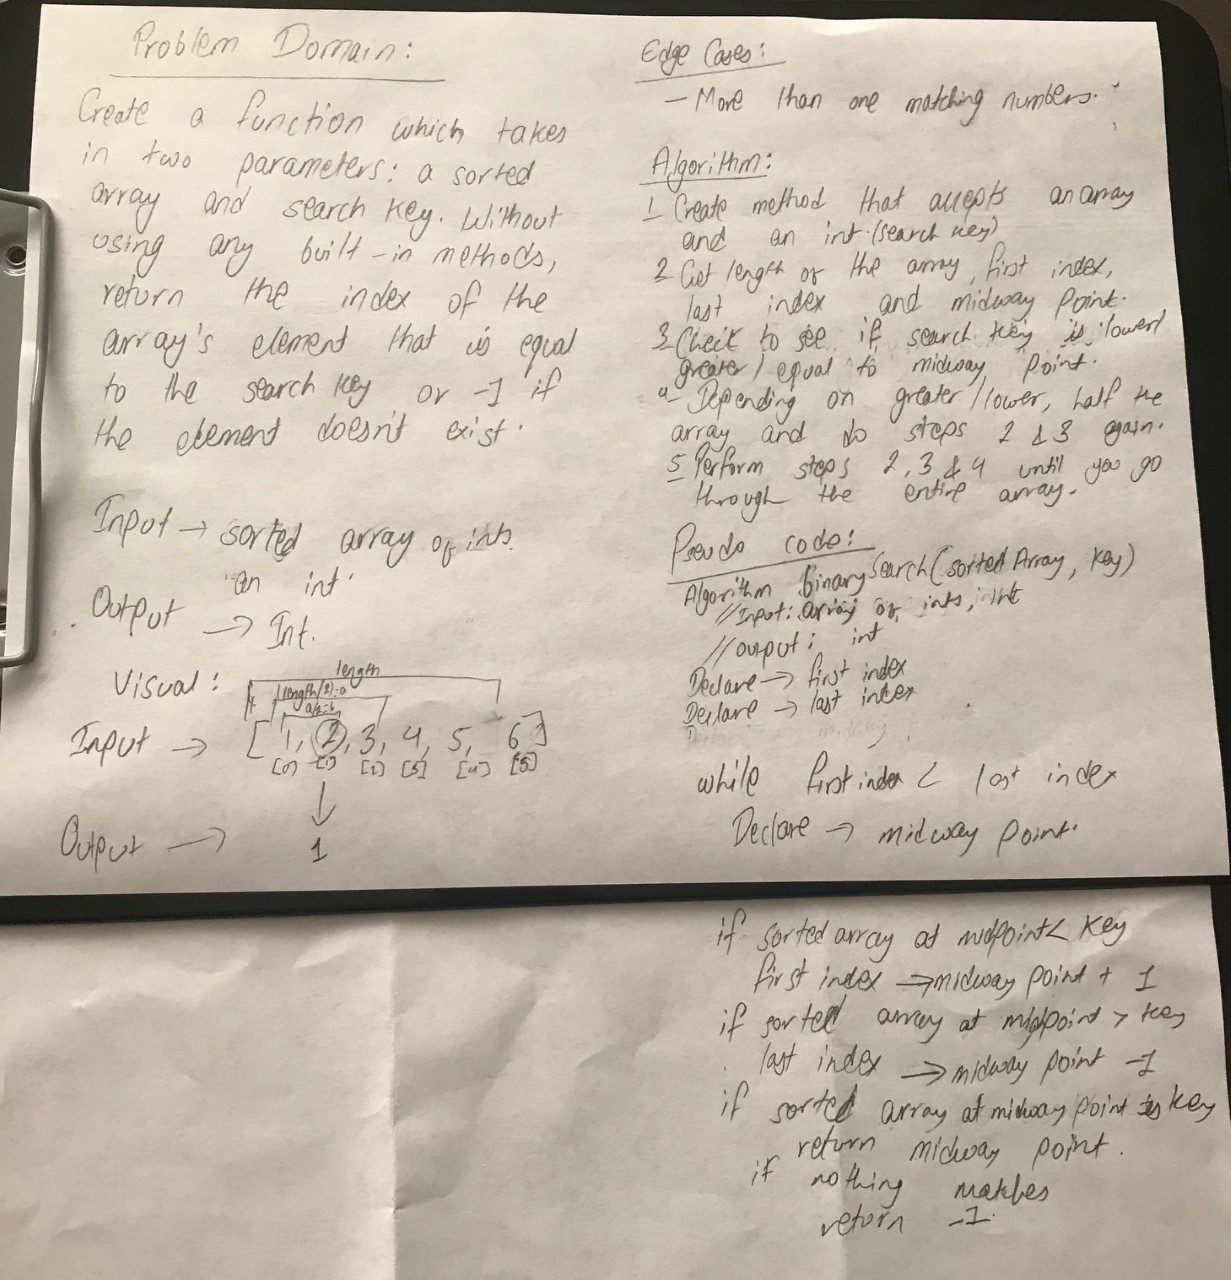 Problem Domain:
Create a function which takes
in two parameters: a sorted
array and search key. Without
using any built-in methods,
return the index of the
array's element that is equal
to the search key or -1 if
the element doesn't exist.
Input → sorted array of ints.
an int
Output → Int.
Visual:
length
(length/2)=a
a/2=b
Input → [1, 2, 3, 4, 5, 6]
[0] [1] [2] [3] [4] [5]
Output → 1
Edge Cases:
- More than one matching numbers.
Algorithm:
1 Create method that accepts an array
and an int (search key)
2 Get length of the array, first index,
last index and midway point.
3 Check to see if search key is lower/
greater/equal to midway point.
4- Depending on greater/lower, half the
array and do steps 2 & 3 again.
5 Perform steps 2, 3 & 4 until you go
through the entire array.
Pseudo code:
Algorithm binarySearch(sortedArray, key)
//Input: array of ints, int
//output: int
Declare → first index
Declare → last index
while first index < last index
Declare → midway point.
if sorted array at midpoint < key
first index → midway point + 1
if sorted array at midpoint > key
last index → midway point -1
if sorted array at midway point is key
return midway point.
if nothing matches
return -1.